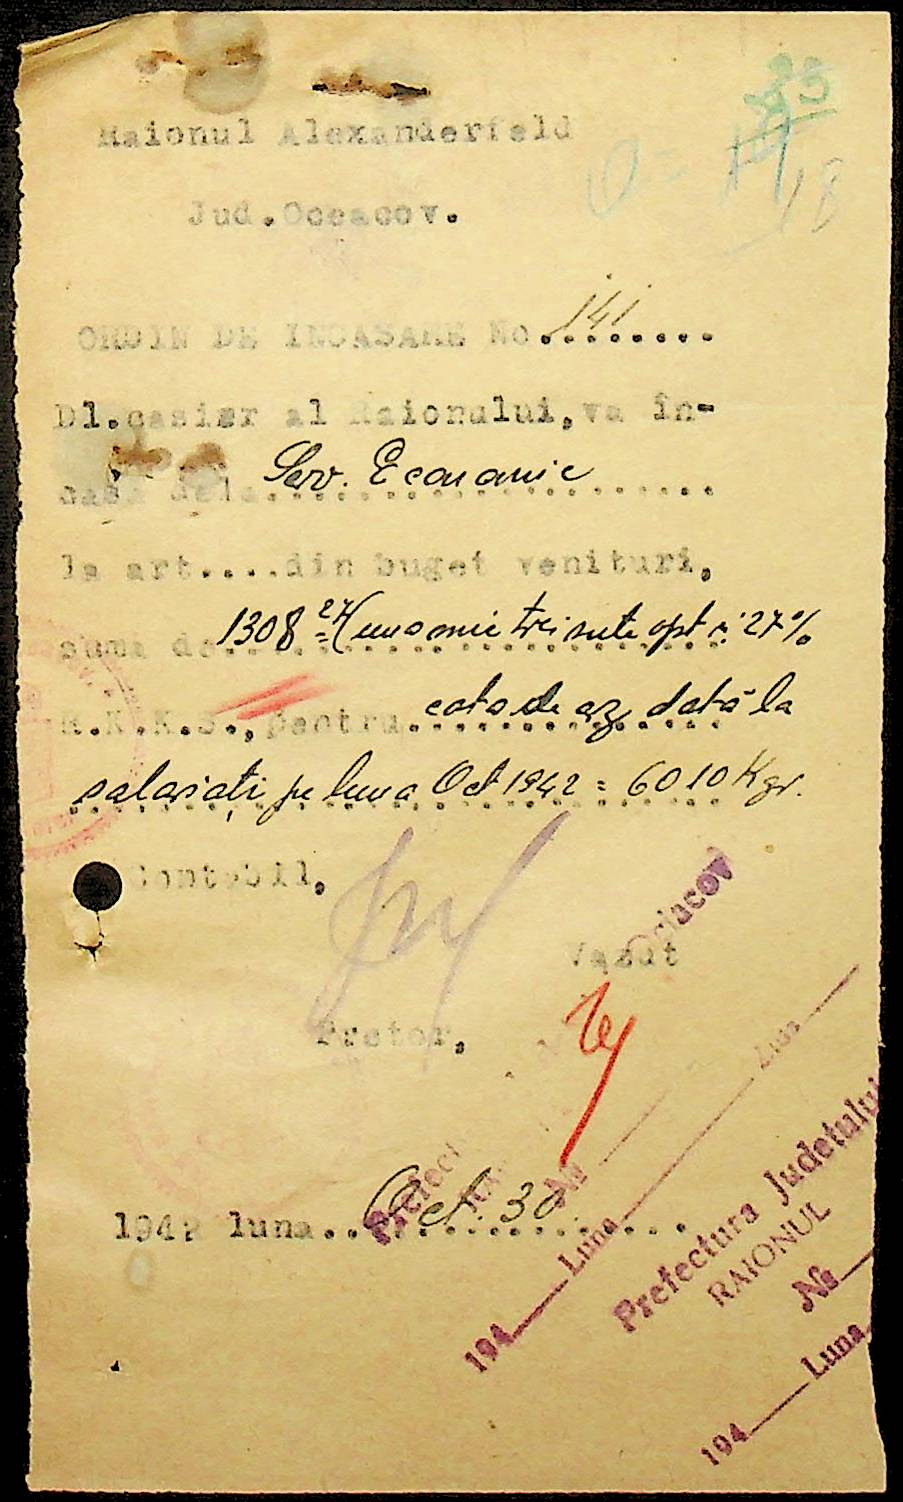 Raionul Alexanderfeld
Jud.Oceacov.
ORDIN DE INCASARE No. 141
Dl.casier al Raionului,va în-
casa dela Serv. Economic
la art....din buget venituri,
suma de 1308 27 (una mie trei sute opt și 27%
R.K.K.S., pentru cota de az dată la
salariați pe luna Oct 1942 = 6010 Kgr.
Contabil,
Vazut
Pretor,
1942 luna Oct. 30
Ociacov
Prefect
№
194 Luna Ziua
Prefectura Judetului
RAIONUL
№
194 Luna